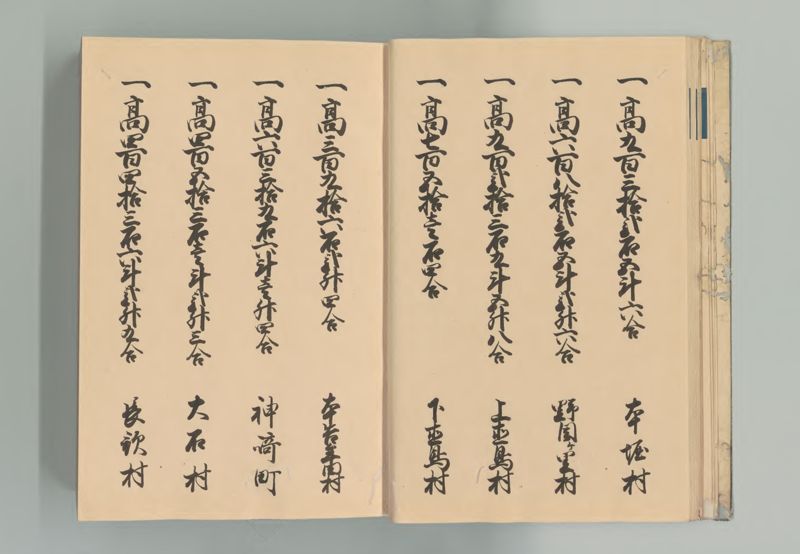 一高九百三拾弐石五斗六合 本堀村
一高六百八拾弐石五斗弐升六合 ヶ里村
一高九百弐拾三石九斗五升八合 上直鳥村
一高七百五拾壱石四合 下直鳥村
一高三百九拾六石弐升四合 本告牟田村
一高六百三拾九石六斗壱升四合 神崎町
一高四百五拾三石壱斗弐升三合 大石村
一高四百四拾三石六斗弐升九合 村